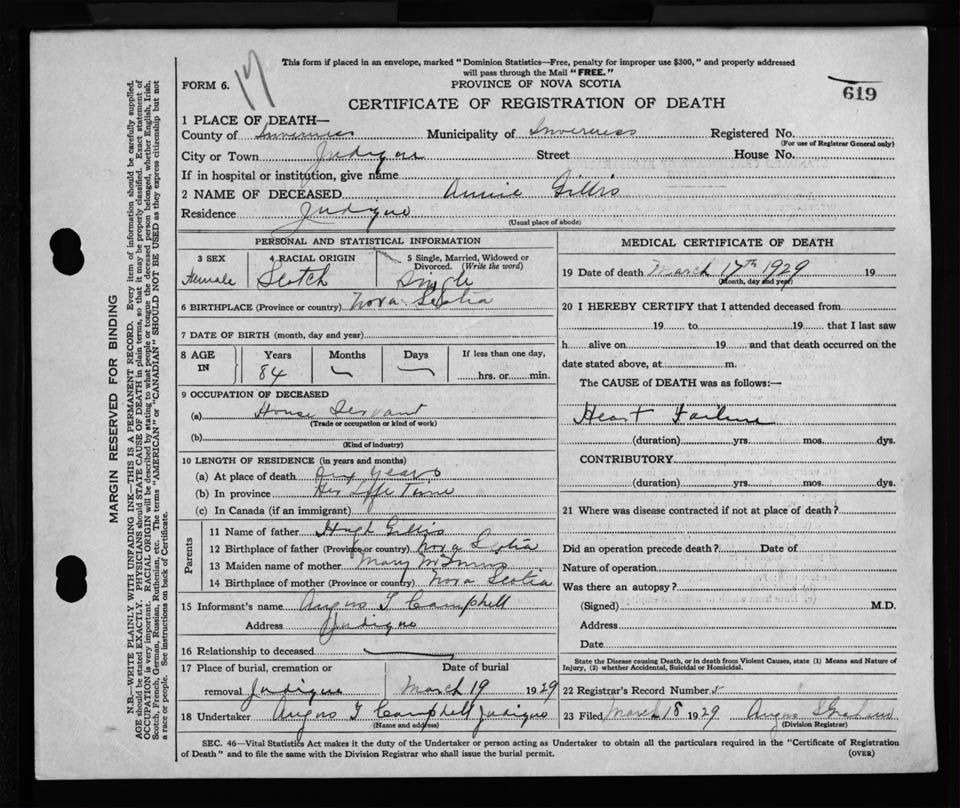 This form if placed in an envelope, marked "Dominion Statistics—Free, penalty for improper use $300," and properly addressed
will pass through the Mail "FREE."
FORM 6.
17
PROVINCE OF NOVA SCOTIA
619
CERTIFICATE OF REGISTRATION OF DEATH
1 PLACE OF DEATH—
County of Inverness Municipality of Inverness Registered No.
(For use of Registrar General only)
City or Town Judique Street House No.
If in hospital or institution, give name
2 NAME OF DECEASED Annie Gillis
Residence Judique
(Usual place of abode)
PERSONAL AND STATISTICAL INFORMATION
3 SEX 4 RACIAL ORIGIN 5 Single, Married, Widowed or
Divorced. (Write the word)
Female Scotch Single
6 BIRTHPLACE (Province or country) Nova Scotia
7 DATE OF BIRTH (month, day and year)
8 AGE IN Years Months Days If less than one day,
84 hrs. or min.
9 OCCUPATION OF DECEASED
(a) House Servant
(Trade or occupation or kind of work)
(b)
(Kind of industry)
10 LENGTH OF RESIDENCE (in years and months)
(a) At place of death Six Years
(b) In province Her Life Time
(c) In Canada (if an immigrant)
Parents
11 Name of father Hugh Gillis
12 Birthplace of father (Province or country) Nova Scotia
13 Maiden name of mother Mary McInnis
14 Birthplace of mother (Province or country) Nova Scotia
15 Informant's name Angus T Campbell
Address Judique
16 Relationship to deceased
17 Place of burial, cremation or Date of burial
removal Judique March 19 1929
18 Undertaker Angus T Campbell Judique
(Name and address)
MEDICAL CERTIFICATE OF DEATH
19 Date of death March 17th 1929 19
(Month, day and year)
20 I HEREBY CERTIFY that I attended deceased from
19 to 19 that I last saw
h alive on 19 and that death occurred on the
date stated above, at m.
The CAUSE of DEATH was as follows:—
Heart Failure
(duration) yrs. mos. dys.
CONTRIBUTORY
(duration) yrs. mos. dys.
21 Where was disease contracted if not at place of death?
Did an operation precede death? Date of
Nature of operation
Was there an autopsy?
(Signed) M.D.
Address
Date
State the Disease causing Death, or in death from Violent Causes, state (1) Means and Nature of
Injury, (2) whether Accidental, Suicidal or Homicidal.
22 Registrar's Record Number
23 Filed March 18 1929 Angus
(Division Registrar)
SEC. 46—Vital Statistics Act makes it the duty of the Undertaker or person acting as Undertaker to obtain all the particulars required in the "Certificate of Registration
of Death" and to file the same with the Division Registrar who shall issue the burial permit. (OVER)
MARGIN RESERVED FOR BINDING
N.B.—WRITE PLAINLY WITH UNFADING INK—THIS IS A PERMANENT RECORD. Every item of information should be carefully supplied.
AGE should be stated EXACTLY. PHYSICIANS should STATE CAUSE OF DEATH in plain terms, so that it may be properly classified. Exact statement of
OCCUPATION is very important. RACIAL ORIGIN will be described by stating to what people or tongue the deceased person belonged, whether English, Irish,
Scotch, French, German, Russian, Ruthenian, etc. The terms "AMERICAN" or "CANADIAN" SHOULD NOT BE USED as they express citizenship but not
a race or people. See instructions on back of Certificate.